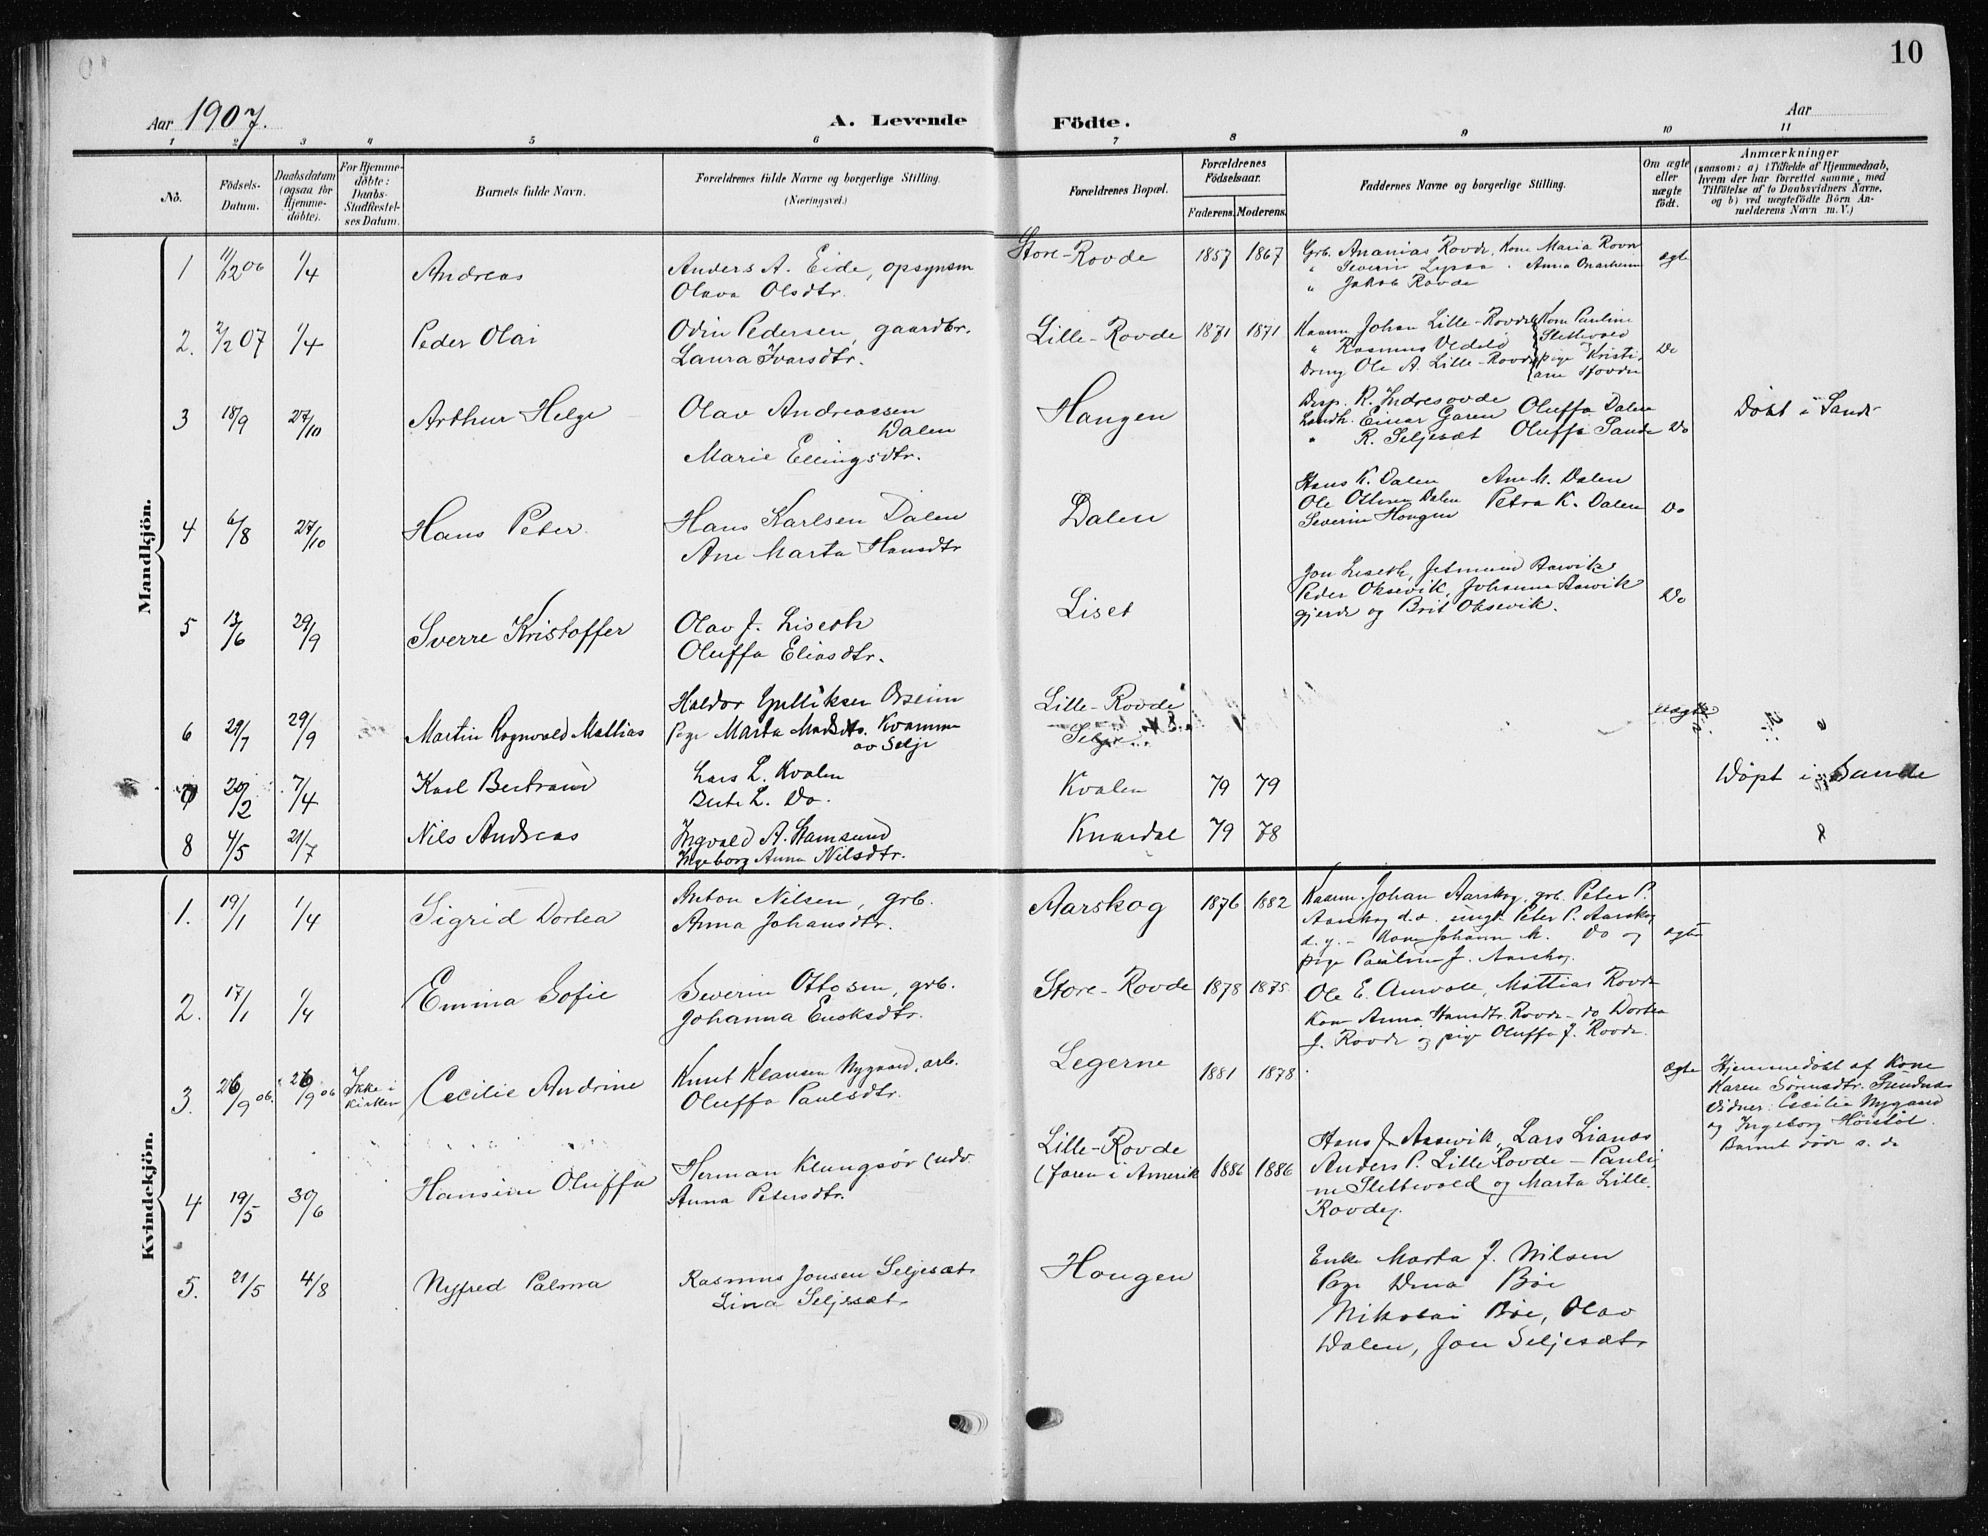 10
Aar 1907.
A. Levende Födte.
Aar
1 2 3 4 5 6 7 8 9 10 11
No.
Födsels-Datum.
Daabsdatum (ogsaa for Hjemmedöbte).
For Hjemmedöbte: Daabs-Stadfæstelses Datum.
Barnets fulde Navn.
Forældrenes fulde Navne og borgerlige Stilling. (Næringsvei.)
Forældrenes Bopæl.
Forældrenes Födselsaar.
Faderens. Moderens.
Faddernes Navne og borgerlige Stilling.
Om ægte eller uægte födt.
Anmærkninger
(saasom: a) i Tilfælde af Hjemmedaab,
hvem der har forrettet samme, med
Tilföielse af to Daabsvidners Navne,
og b) ved uægtefödte Börn An-
melderens Navn m. V.)
Mandkjön.
1 11/12 06 1/4 Andreas
Anders A. Eide, opsynsm
Olava Olsdtr.
Store-Rovde 1857 1867
Grb. Ananias Rovde, Kone Maria Rovde
" Severin
" Jakob Rovde
ægte
2. 2/2 07 1/4 Peder Olai
Odin Pedersen, gaardbr.
Laura Ivarsdtr.
Lille-Rovde 1871 1871
Kaarm Johan Lille-Rovde Kone Pauline
" Rasmus Vedeld Slettevold
Dreng Ole A. Lille-Rovde pige Kristi-
ane
Do
3 18/9 27/10 Arthur Helge
Olav Andreassen
Dalen
Marie Ellingsdtr.
Haugen
R. Indresovde
Landh. Einar Garen Oluffa Dalen
" R. Seljesæt Oluffa Sande
Do
Döbt i Sande
4 6/8 27/10 Hans Peter
Hans Karlsen Dalen
Ane Marta Hansdtr
Dalen
Hans K. Dalen Ane M. Dalen
Ole Ottesen Dalen Petra K. Dalen
Severin Hougen
Do
5 13/6 29/9 Sverre Kristoffer
Olav J. Liseth
Oluffa Eliasdtr.
Liset
Jon Liseth, Jetmund Aasvik
Peder Oksevik, Johanna Aasvik
gjerde og Brit Oksevik.
Do
6 29/7 29/9 Martin Ragnvald Mathias
Haldor Gulliksen Orseim
Pige Marta Madsdtr. Kvamme
av Selje
Lille-Rovde
Selje
uægte
7 20/2 7/4 Karl Bertram
Lars L. Kvalen
Berte L. Do.
Kvalen 79 79
Döpt i Sande
8 4/5 21/7 Nils Andreas
Ingvald A. Stamsund
Ingeborg Anna Nilsdtr.
Knardal 79 78
Kvindekjön.
1. 19/1 1/4 Sigrid Dortea
Anton Nilsen, grb.
Anna Johansdtr.
Aarskog 1876 1882
Kaarm. Johan Aarskog, grb. Peter P.
Aarskog d.æ. ungk. Peter P. Aarskog
d.y. – Kone Johanne M. Do og
pige Pauline J. Aarskog.
ægte
2. 17/1 1/4 Emma Sofie
Severin Ottosen, grb.
Johanna Eriksdtr.
Store-Rovde 1878 1875
Ole E. Aurvoll, Mattias Rovde
Kone Anna Hansdtr. Rovde – do Dortea
J. Rovde og pige Oluffa J. Rovde.
3. 26/9 06. 26/9 06 Ikke i Kirken Cecilie Andrine
Knut Klausen Nygaard, arb.
Oluffa Paulsdtr.
Legerne 1881 1878
ægte
Hjemmedöbt af Kone
Karen Sörensdtr.
Vidner: Cecilie Nygaard
og Ingeborg Hörstöl.
Barnet döde s. d.
4 19/5 30/6 Hansine Oluffa
Herman Klungsör (udv.
Anna Petersdtr.
Lille-Rovde
(faren i Amerik 1886 1886
Hans J. Aasevik, Lars Lianes
Anders P. Lille Rovde – Pauli-
ne Slettevold og Marta Lille
Rovde.
5. 21/5 4/8 Nyfred Palma
Rasmus Jonsen Seljesæt
Lina Seljesæt
Hougen
Enke Marta J. Nilsen
Pige Dina Böe
Nikolai Böe, Olav
Dalen, Jon Seljesæt